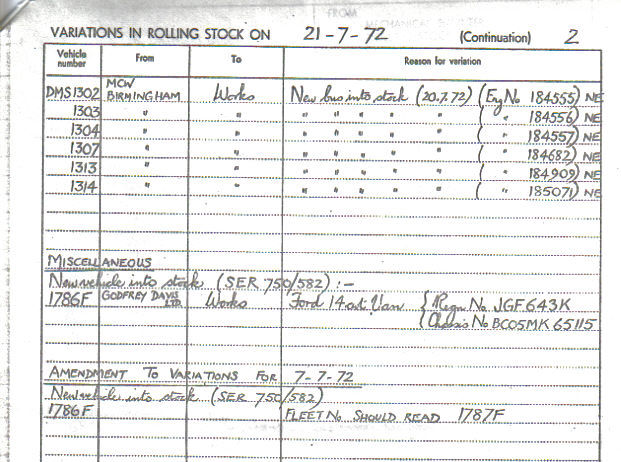 VARIATIONS IN ROLLING STOCK ON 21-7-72 (Continuation) 2
Vehicle number From To Reason for variation
DMS1302 MCW BIRMINGHAM Works New bus into stock (20.7.72) (Eng No 184555) NE
1303 " " " " " " " " ( " 184556) NE
1304 " " " " " " " " ( " 184557) NE
1307 " " " " " " " " ( " 184682) NE
1313 " " " " " " " " ( " 184909) NE
1314 " " " " " " " " ( " 185071) NE
MISCELLANEOUS
New vehicle into stock (SER 750/582) :-
1786F GODFREY DAVIS LTD Works Ford 14 cwt Van { Regn No JGF643K
{ Chassis No BC05MK 65115
AMENDMENT TO VARIATIONS FOR 7-7-72
New vehicle into stock (SER 750/582)
1786F FLEET No SHOULD READ 1787F